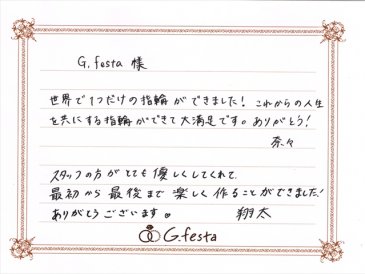 G.festa 様
世界で1つだけの指輪ができました! これからの人生
を共にする指輪ができて大満足です。ありがとう!
奈々
スタッフの方がとても優しくしてくれて、
最初から最後まで楽しく作ることができました!
ありがとうございます。 翔太
G.festa